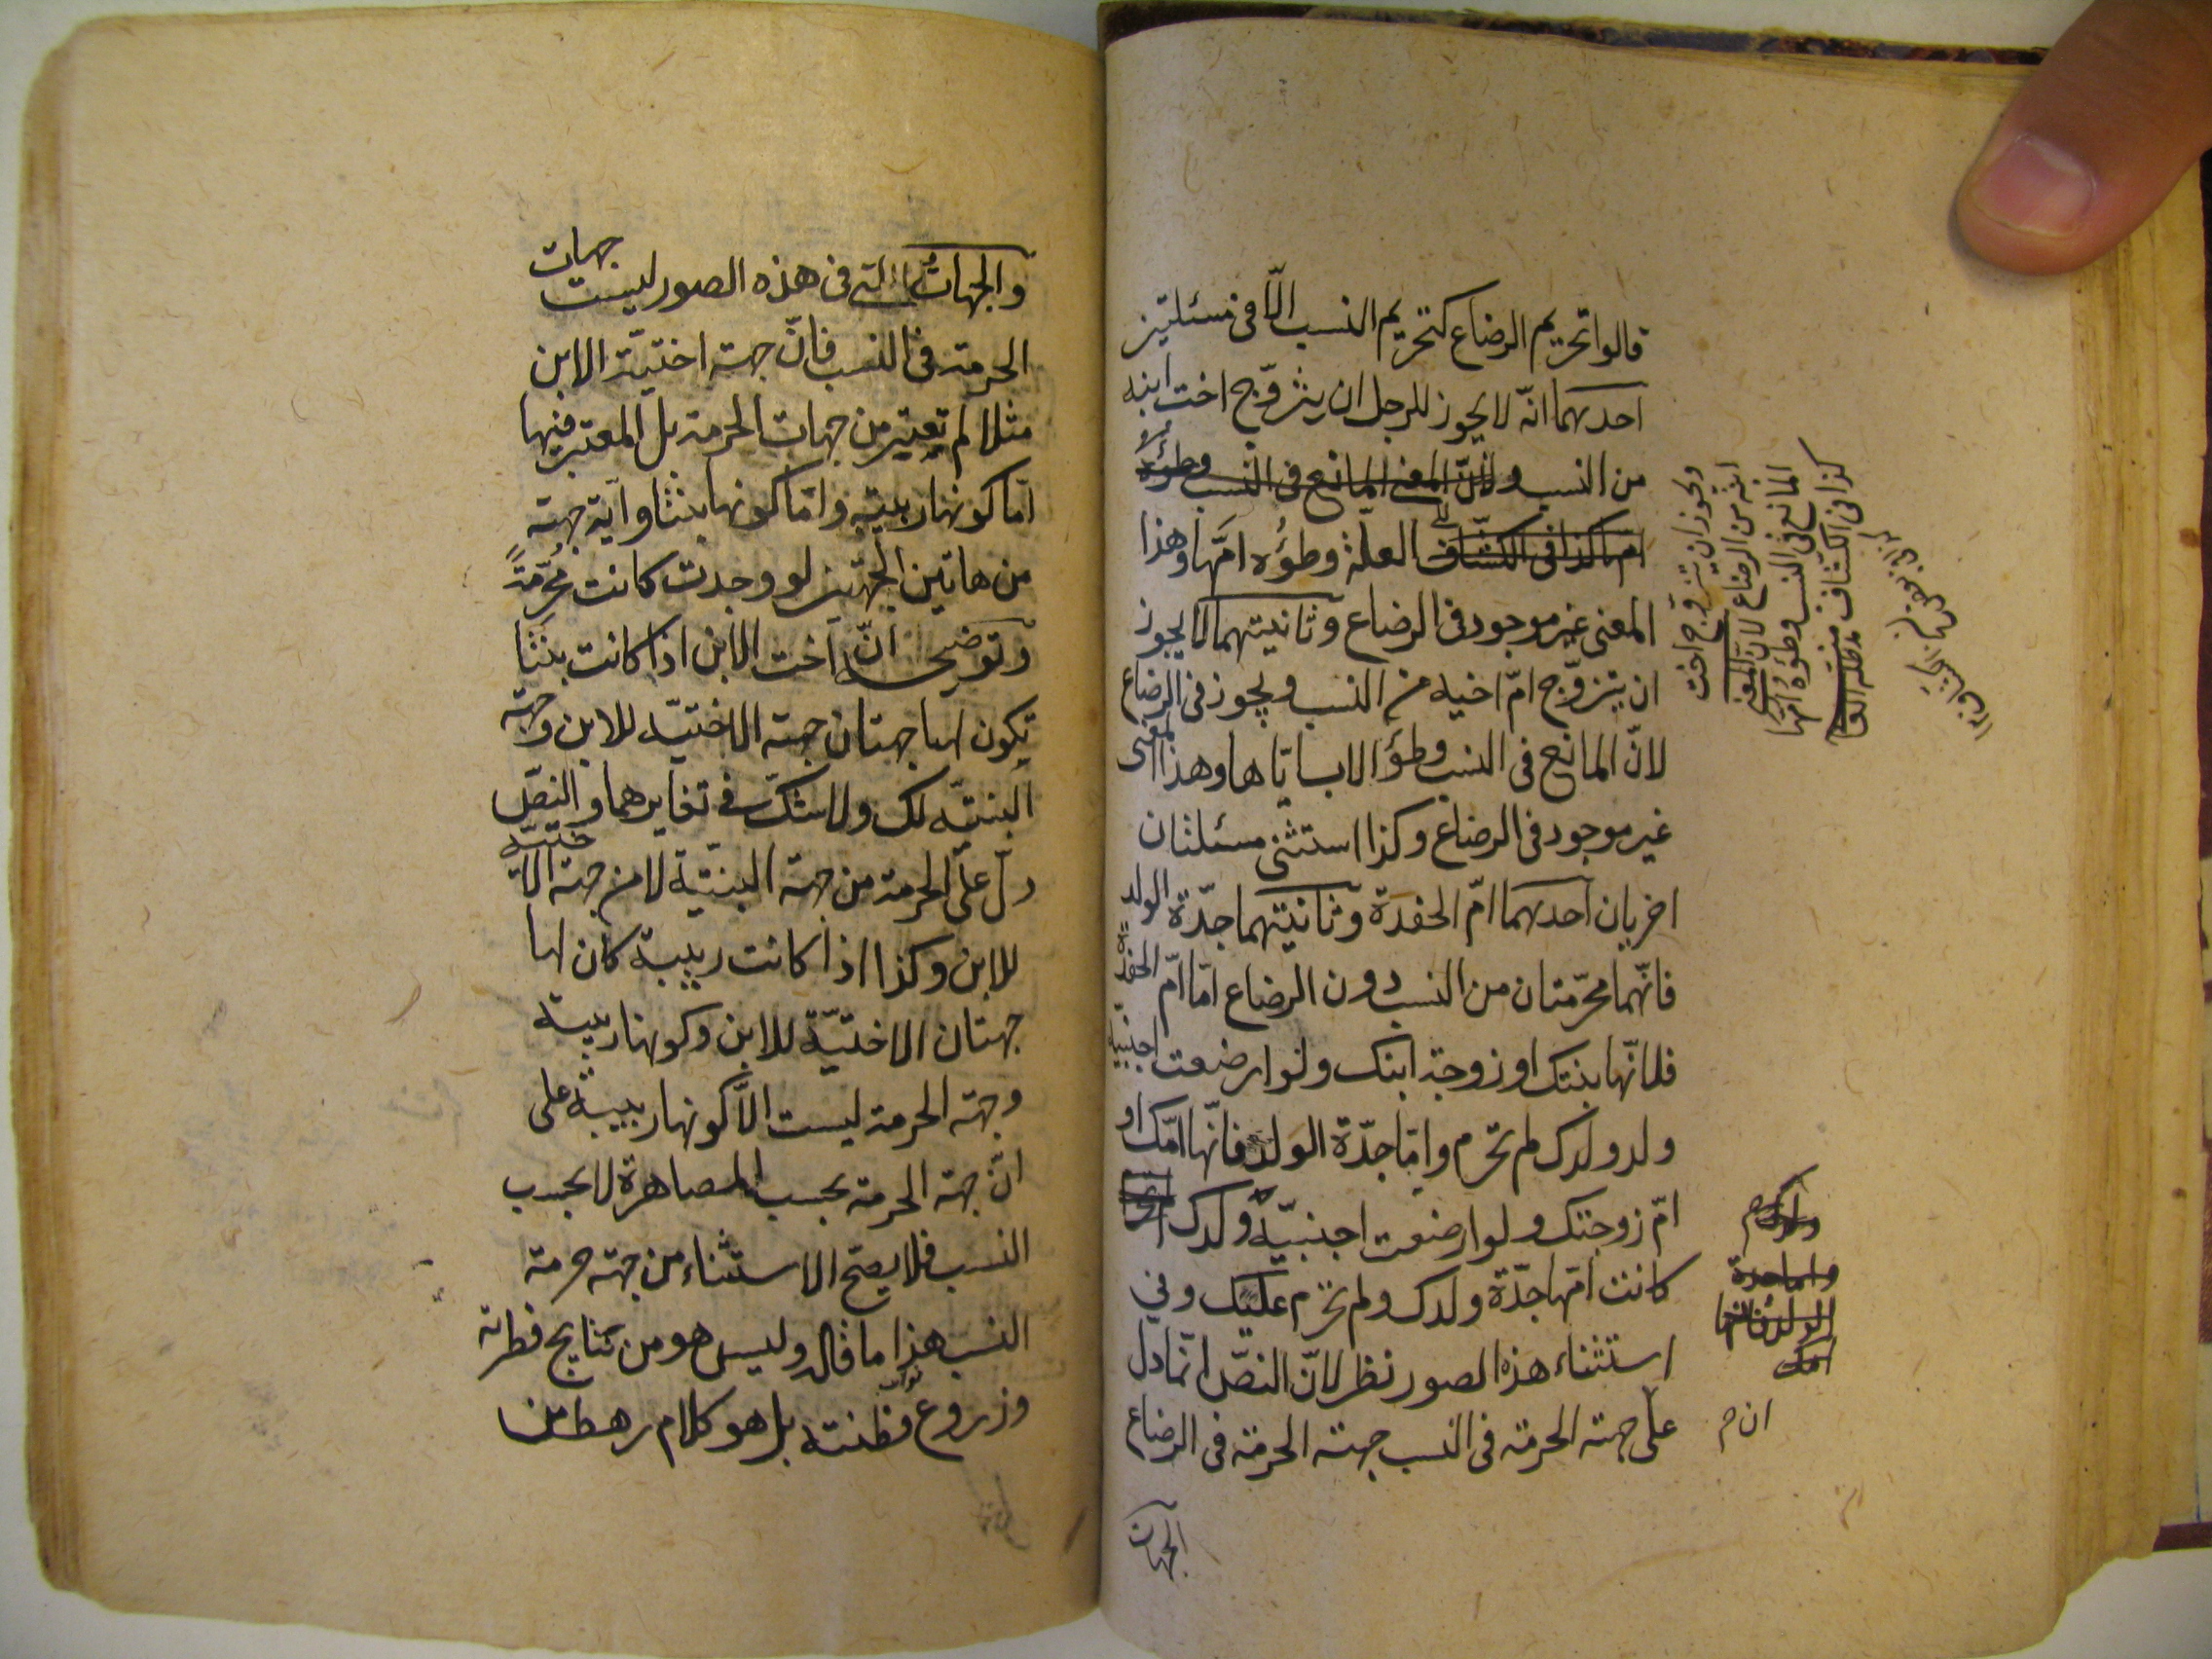 قالوا تحريم الرضاع كتحريم النسب الّا فى مسئلتين
احديهما انّه لا يجوز للرجل ان يتزوّج اخت ابنه
من النسب و لانّ المعنى المانع فى النسب وطؤه
امها كذا فى الكشّاف العلة وطؤه امّها وهذا
المعنى غير موجود فى الرضاع وثانيتهما لا يجوز
ان يتزوّج امّ اخيه من النسب ويجوز فى الرضاع
لانّ المانع فى النسب وطؤ الاب ايّاها وهذا المعنى
غير موجود فى الرضاع وكذا استثنى مسئلتان
اخريان احديهما امّ الحفدة وثانيتهما جدّة الولد
فانّهما محرّمتان من النسب دون الرضاع امّا امّ الحفدة
فلانّها بنتك او زوجة ابنك ولو ارضعت اجنبية
ولد ولدك لم تحرم وامّا جدّة الولد فانّها امّك او
امّ زوجتك ولو ارضعت اجنبيّة ولدك
كانت امّها جدّة ولدك ولم تحرم عليك وفى
استثناء هذه الصور نظر لانّ النصّ انّما دلّ
على جهة الحرمة فى النسب جهة الحرمة فى الرضاع
الجهات
ويجوز ان يتزوّج اخت
ابنه من الرضاع لانّ المعنى
المانع فى النسب وطؤه امّها
كذا فى الكشّاف منه
ولدك م
واما جدة
الولد فانها
امك
ان م
والجهات التى فى هذه الصور ليست جهات
الحرمة فى النسب فانّ جهة اختيّة الابن
مثلا لم تعتبر من جهات الحرمة بل المعتبر فيها
امّا كونها ربيبة وامّا كونها بنتا واية جهة
من هاتين الجهتين لو وجدت كانت محرّمةً
وتوضيحه انّ اخت الابن اذا كانت بنتا
يكون لها جهتان جهة الاختيّة للابن وجهة
البنتيّة لك ولا شكّ فى تغايرهما والنصّ
دلّ على الحرمة من جهة البنتيّة لا من جهة الاختيّة
للابن وكذا اذا كانت ربيبة كان لها
جهتان الاختيّة للابن وكونها ربيبة
وجهة الحرمة ليست الّا كونها ربيبة على
انّ جهة الحرمة بحسب المصاهرة لا بحسب
النسب فلا يصحّ الاستثناء من جهة حرمة
النسب هذا ما قال وليس هو من نتايج فطرته
وزروع فطنته بل هو كلام رهط من